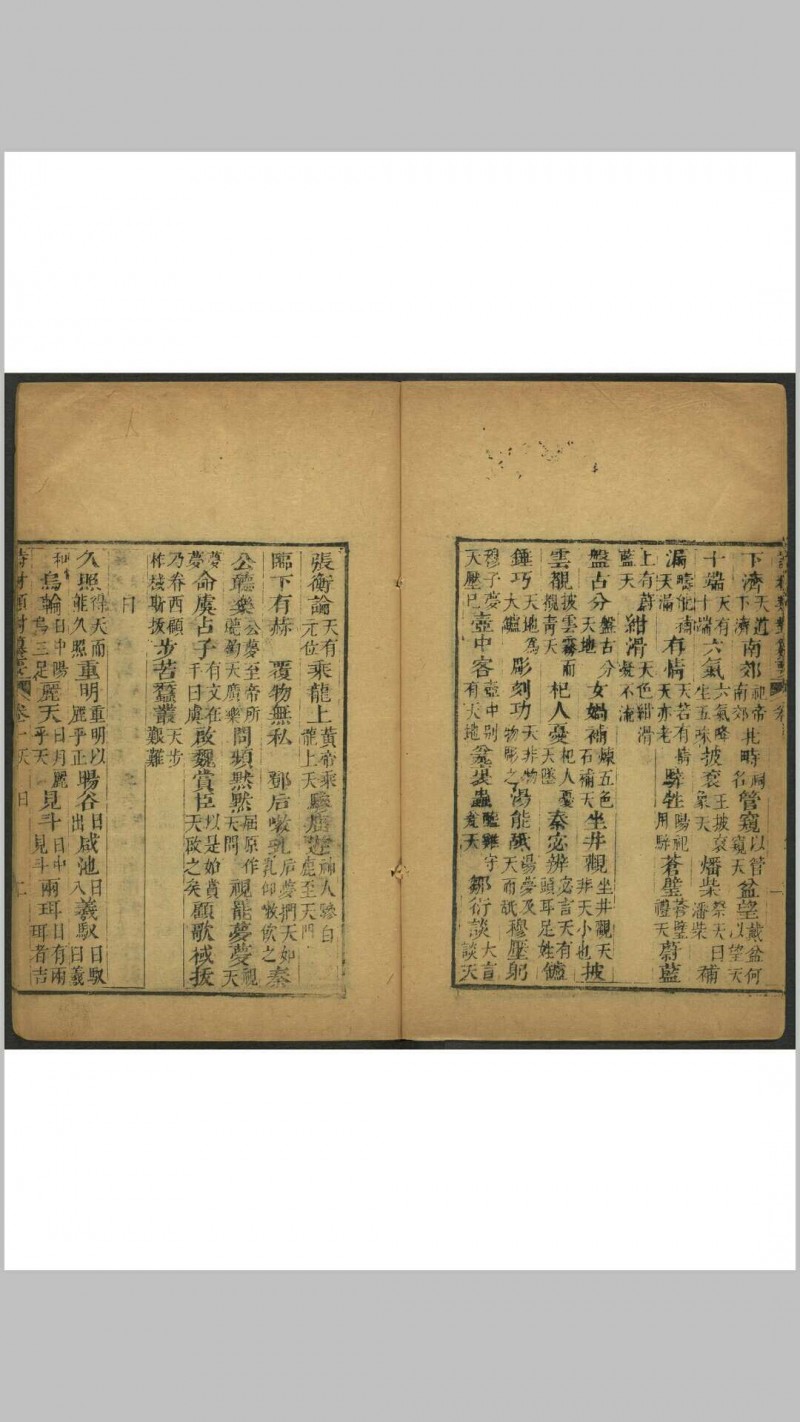 下濟天道下濟南郊祀帝南郊北畤祠名管窺以管窺天盆望戴盆何以望天
十端天有十端六氣六氣降生五味披袞王披袞象天燔柴祭天曰燔柴補
漏疇能補天漏有情天若有情天亦老騂牲陽祀用騂蒼璧蒼璧禮天蔚藍
上有蔚藍天紺滑天色紺滑凝不流
盤古分盤古分天地女媧補煉五色石補天坐井觀坐井觀天非天小也披
雲覩披雲霧而覩青天杞人憂杞人憂天墜秦宓辨宓言天有頭耳足姓鑪
錘巧天地爲大鑪彫刻功天非物物彫之湯能䑛湯夢及天而䑛穆壓躬
穆子夢天壓已壺中客壺中別有天地瓮裏蟲醯雞守瓮天鄒衍談大言談天
張衡論天有元位乘龍上黃帝乘龍上天驂鹿神人驂白鹿至天門
臨下有赫 覆物無私 鄧后嗽乳后夢捫天如乳仰嗽飲之秦
公聽樂公夢至帝所聽鈞天廣樂問頻默默屈原作天問視罷夢夢視天
夢夢命虞占子有文在手曰虞啟魏賞臣以是始賞天啟之矣顧歌棫拔
乃眷西顧柞棫斯拔步苦蠶叢天步艱難
日
久照得天而能久照重明重明以麗乎正暘谷日出咸池日入羲馭日馭曰羲
和烏輪日中陽烏三足麗天日月麗乎天見斗日中見斗兩珥日有兩珥者吉
卷一 天 日 二